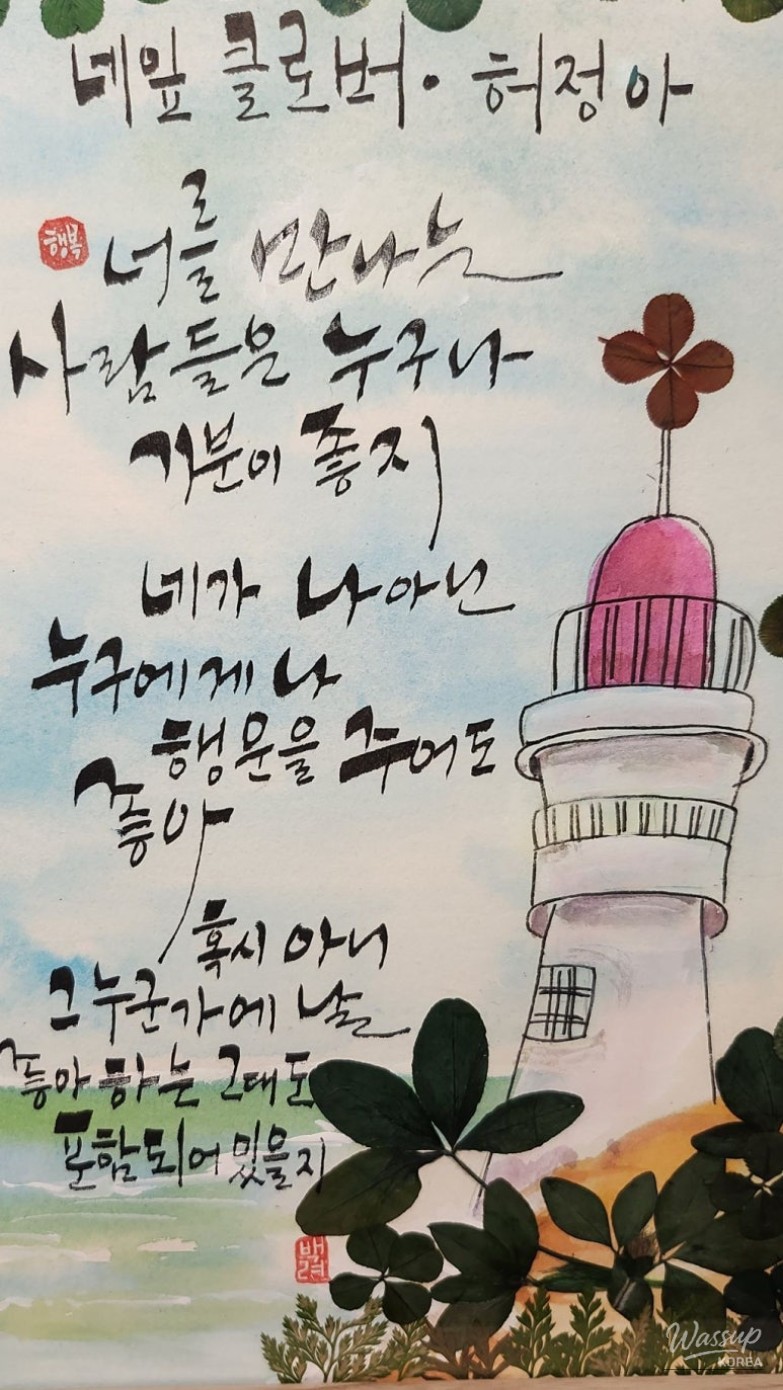 네잎 클로버 · 허정아
행복
너를 만나는
사람들은 누구나
기분이 좋지
네가 나 아닌
누구에게나
행운을 주어도
좋아
혹시 아니
그 누군가에 날
좋아하는 그대도
포함되어 있을지
백련
Wassup
KOREA